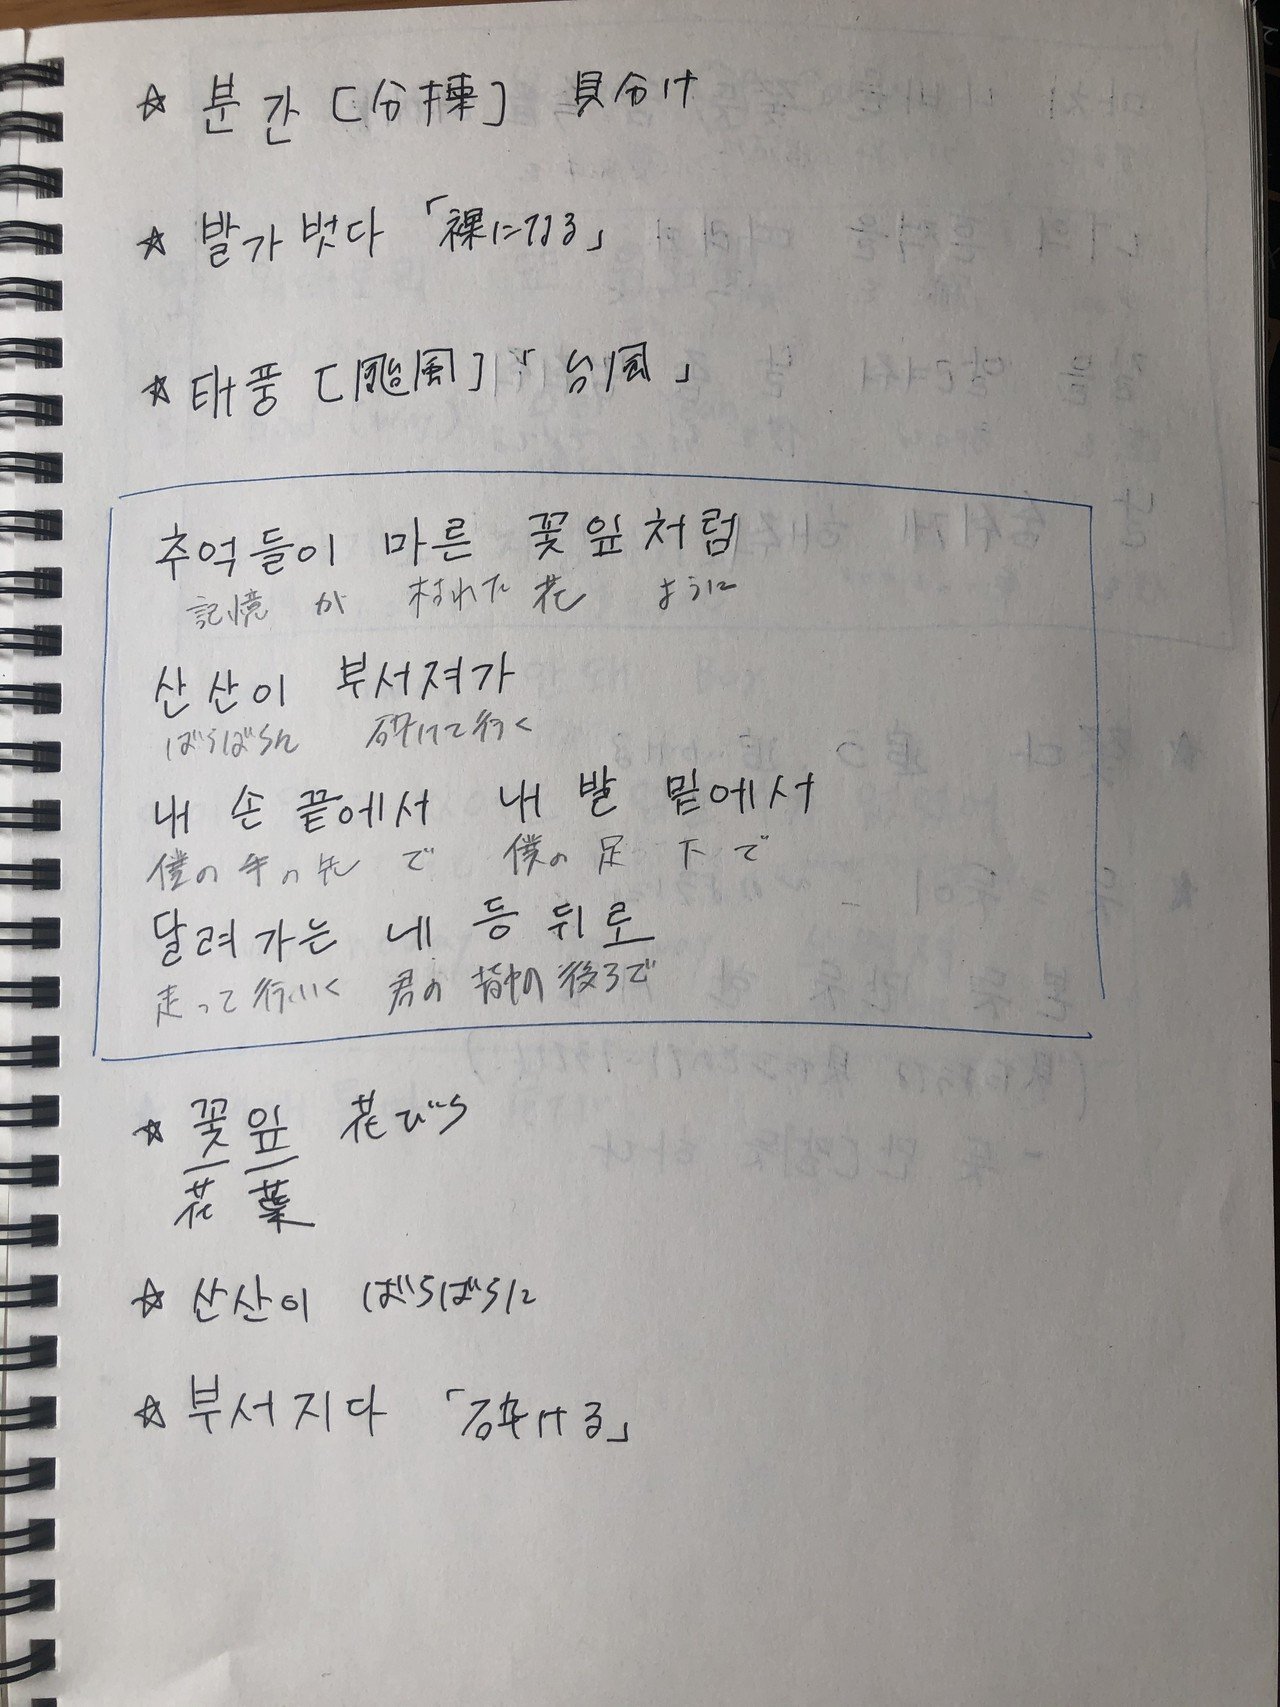 ☆ 분간 [分揀] 見分け
☆ 발가벗다 「裸になる」
☆ 태풍 [颱風] 「台風」
추억들이 마른 꽃잎처럼
記憶 が 枯れた 花 ように
산산이 부서져가
ばらばらに 砕けて行く
내 손 끝에서 내 발 밑에서
僕の 手の先 で 僕の 足 下 で
달려가는 네 등 뒤로
走って行いく 君の 背中の 後ろで
☆ 꽃잎 花びら
花 葉
☆ 산산이 ばらばらに
☆ 부서지다 「砕ける」